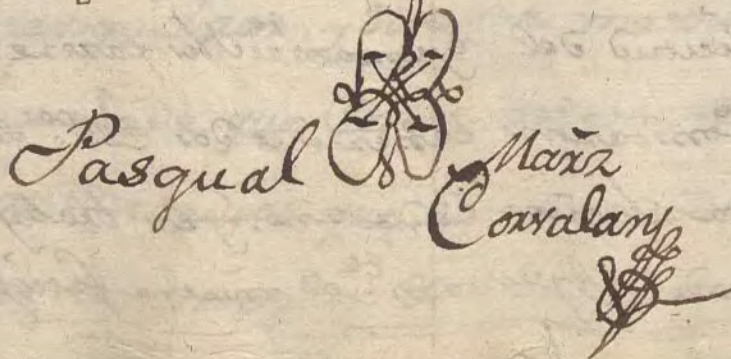 Pasqual Marz̃
Corvalan